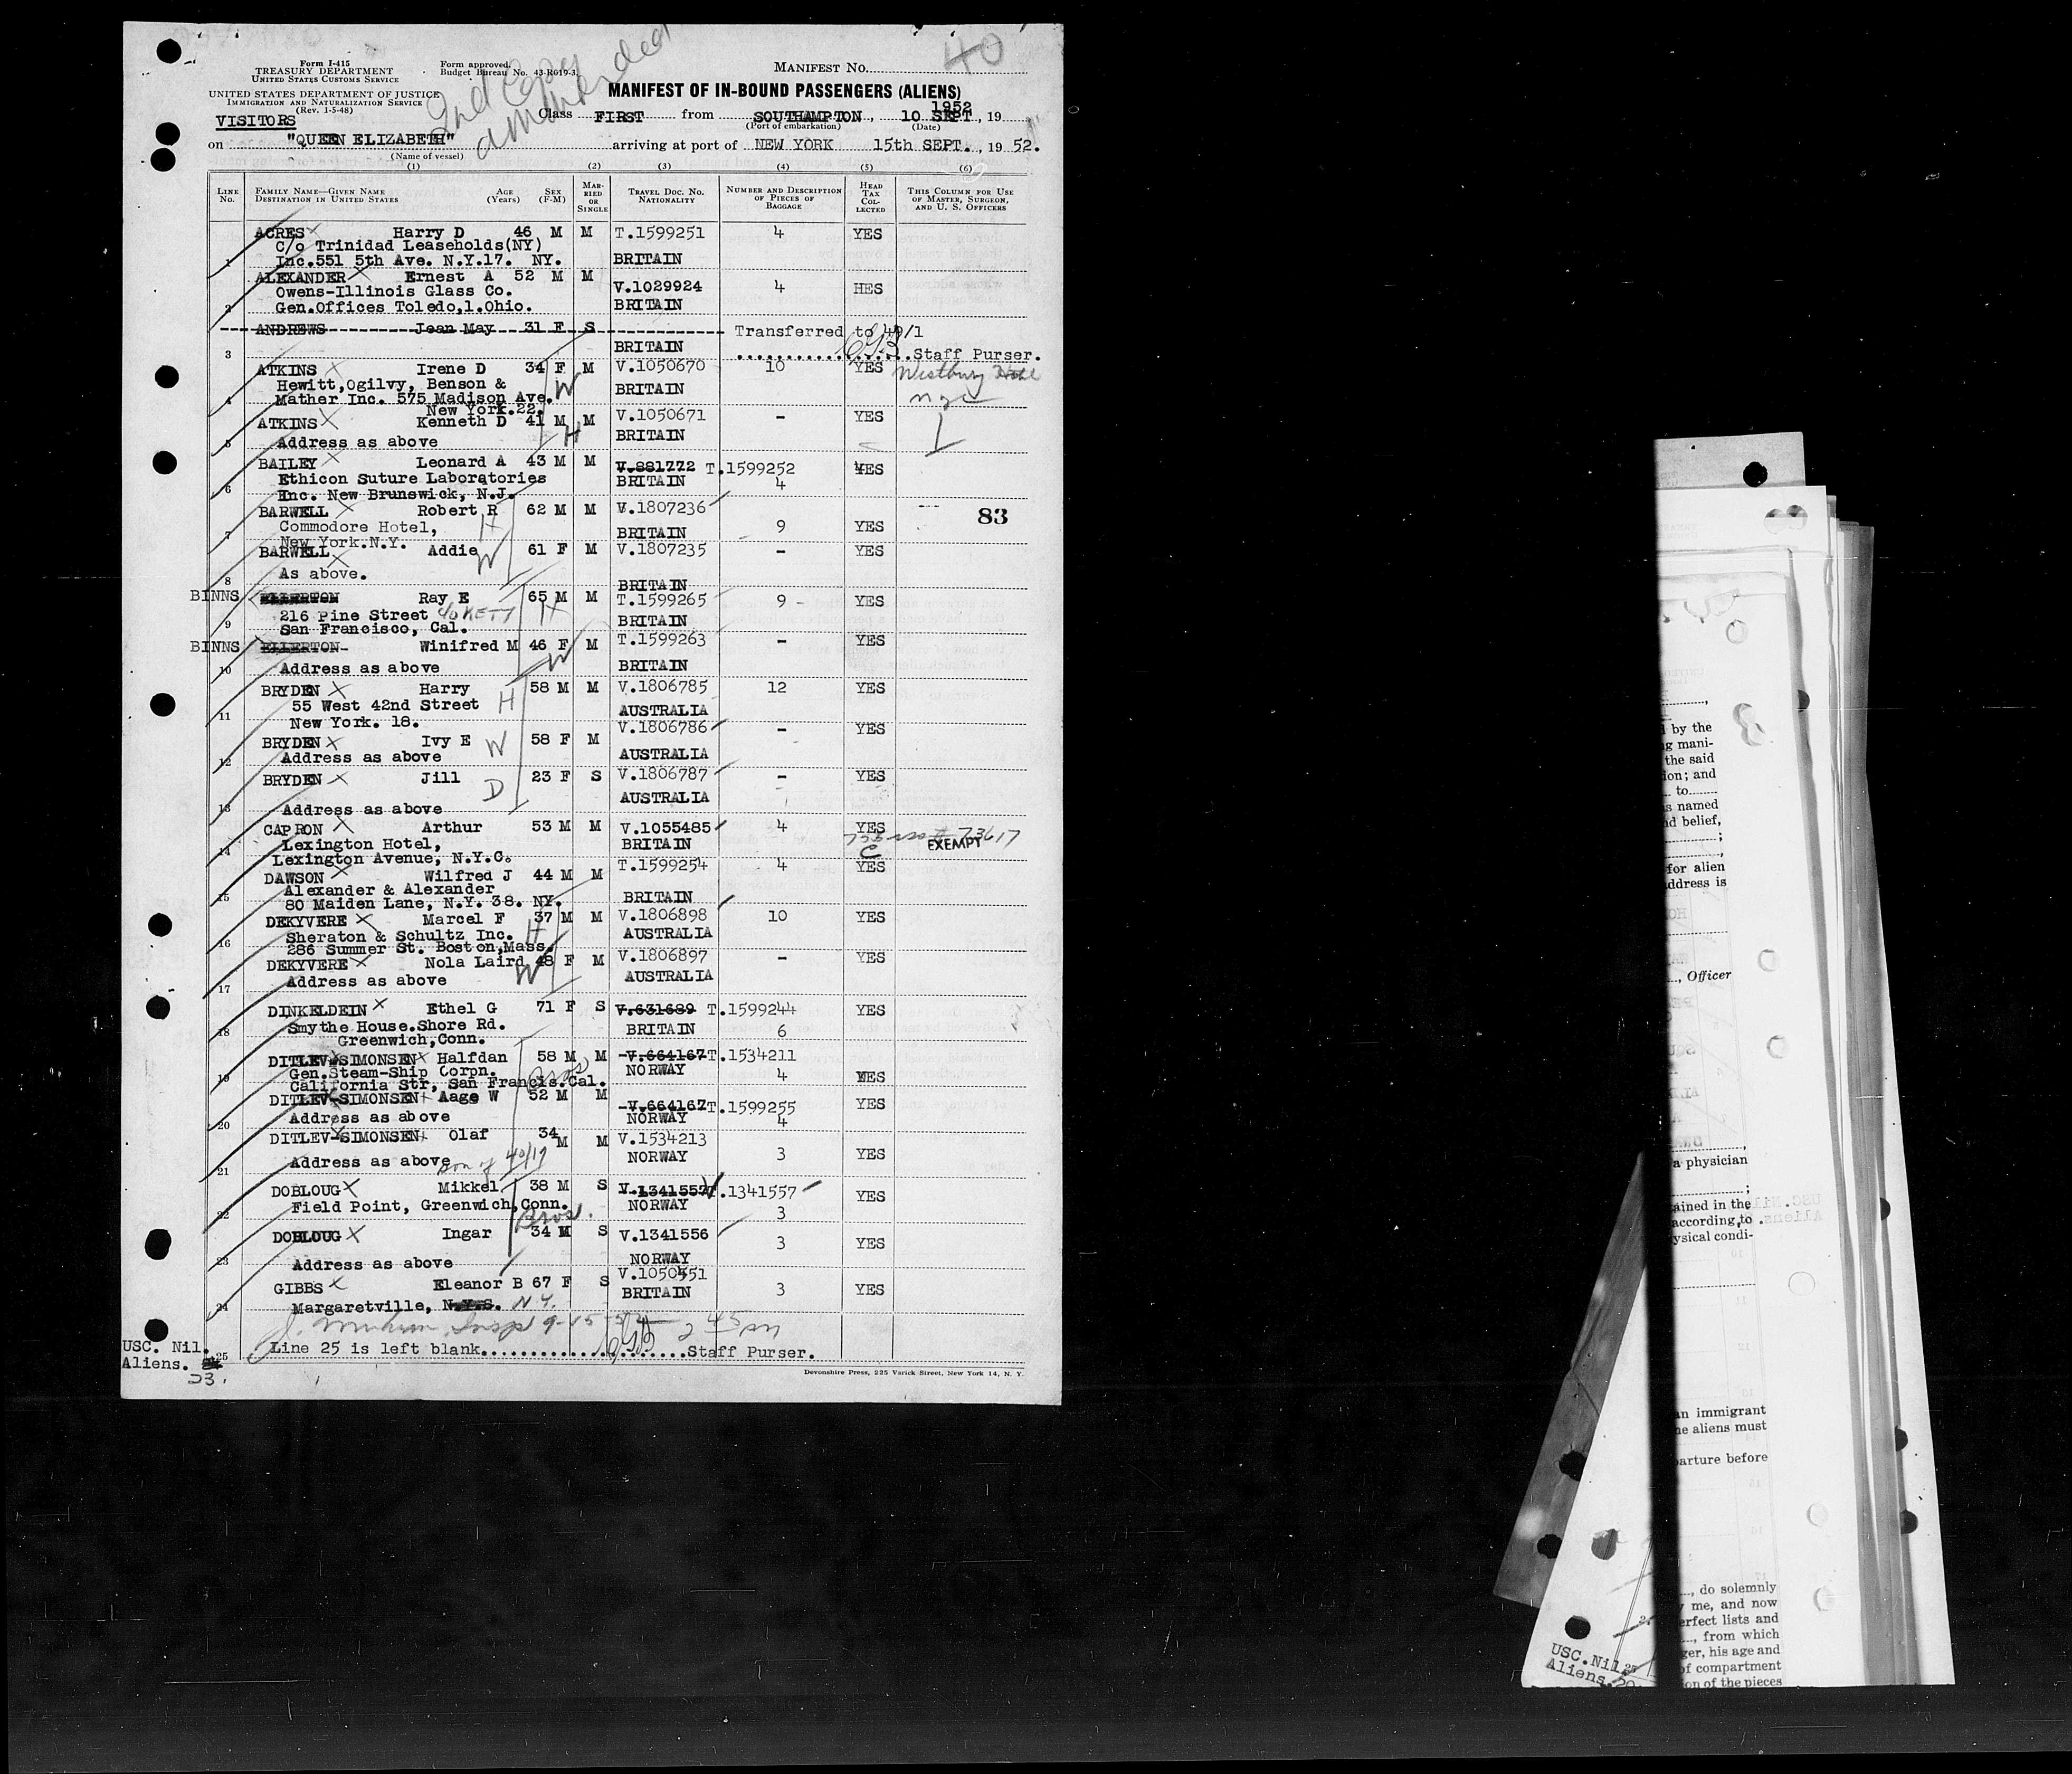 40
Form I-415
TREASURY DEPARTMENT
UNITED STATES CUSTOMS SERVICE
Form approved.
Budget Bureau No. 43-R019-3.
MANIFEST NO.
2nd Copy
amended
UNITED STATES DEPARTMENT OF JUSTICE
IMMIGRATION AND NATURALIZATION SERVICE
(Rev. 1-5-48)
MANIFEST OF IN-BOUND PASSENGERS (ALIENS)
VISITORS
Class FIRST from SOUTHAMPTON, 10 SEPT, 19 1952
(Port of embarkation) (Date)
on "QUEEN ELIZABETH" arriving at port of NEW YORK 15th SEPT., 19 52.
(Name of vessel)
(1) (2) (3) (4) (5) (6)
LINE No. FAMILY NAME—GIVEN NAME DESTINATION IN UNITED STATES AGE (Years) SEX (F-M) MARRIED OR SINGLE TRAVEL DOC. NO. NATIONALITY NUMBER AND DESCRIPTION OF PIECES OF BAGGAGE HEAD TAX COLLECTED THIS COLUMN FOR USE OF MASTER, SURGEON, AND U. S. OFFICERS
ACRES Harry D 46 M M T.1599251 4 YES
C/o Trinidad Leaseholds(NY)
1 Inc.551 5th Ave. N.Y.17. NY. BRITAIN
ALEXANDER Ernest A 52 M M V.1029924 4 HES
Owens-Illinois Glass Co.
2 Gen.Offices Toledo,1.Ohio. BRITAIN
ANDREWS Jean May 31 F S Transferred to 49/1
3 BRITAIN Staff Purser.
ATKINS Irene D 34 F M V.1050670 10 YES Westbury Hotel
Hewitt,Ogilvy, Benson & W BRITAIN
4 Mather Inc. 575 Madison Ave. NYC
New York.22.
ATKINS Kenneth D 41 M M V.1050671 - YES
5 Address as above H BRITAIN
BAILEY Leonard A 43 M M V.881772 T.1599252 YES
Ethicon Suture Laboratories BRITAIN 4
6 Inc. New Brunswick, N.J.
BARWELL Robert R 62 M M V.1807236 83
7 Commodore Hotel, H BRITAIN 9 YES
New York.N.Y.
BARWELL Addie 61 F M V.1807235 - YES
W
8 As above. BRITAIN
BINNS ELLERTON Ray E 65 M M T.1599265 9 - YES
9 216 Pine Street H BRITAIN
San Francisco, Cal.
BINNS ELLERTON Winifred M 46 F M T.1599263 - YES
10 Address as above W BRITAIN
BRYDEN Harry 58 M M V.1806785 12 YES
11 55 West 42nd Street H AUSTRALIA
New York. 18.
BRYDEN Ivy E 58 F M V.1806786 - YES
12 Address as above W AUSTRALIA
BRYDEN Jill 23 F S V.1806787 - YES
D AUSTRALIA
13 Address as above
CAPRON Arthur 53 M M V.1055485 4 YES
14 Lexington Hotel, BRITAIN C EXEMPT 73617
Lexington Avenue, N.Y.C.
DAWSON Wilfred J 44 M M T.1599254 4 YES
15 Alexander & Alexander BRITAIN
80 Maiden Lane, N.Y. 38. NY.
DEKYVERE Marcel F 37 M M V.1806898 10 YES
16 Sheraton & Schultz Inc. H AUSTRALIA
286 Summer St. Boston,Mass.
DEKYVERE Nola Laird 48 F M V.1806897 - YES
17 Address as above W AUSTRALIA
DINKELDEIN Ethel G 71 F S V.631689 T.1599244 YES
18 Smythe House.Shore Rd. BRITAIN 6
Greenwich,Conn.
DITLEV-SIMONSEN Halfdan 58 M M V.664167 T.1534211
19 Gen.Steam-Ship Corpn. Bros NORWAY 4 YES
California Str, San Francis.Cal.
DITLEV-SIMONSEN Aage W 52 M M V.664167 T.1599255 YES
20 Address as above NORWAY 4
DITLEV-SIMONSEN Olaf 34 M M V.1534213
21 Address as above son of 40/19 NORWAY 3 YES
DOBLOUG Mikkel 38 M S V.1341557 V.1341557 YES
22 Field Point, Greenwich,Conn. Bros. NORWAY 3
DOBLOUG Ingar 34 M S V.1341556 3 YES
23 Address as above NORWAY
GIBBS Eleanor B 67 F S V.1050551 3 YES
24 Margaretville, N.Y.S. N.Y. BRITAIN
25 Line 25 is left blank Staff Purser.
USC. Nil.
Aliens.
23.
Devonshire Press, 225 Varick Street, New York 14, N. Y.
by the
mani-
the said
and
to
named
belief,
for alien
address is
Officer
a physician
ained in the
according to
ysical condi-
an immigrant
he aliens must
parture before
do solemnly
me, and now
erfect lists and
from which
ger, his age and
of compartment
on of the pieces
USC.Nil.
Aliens.